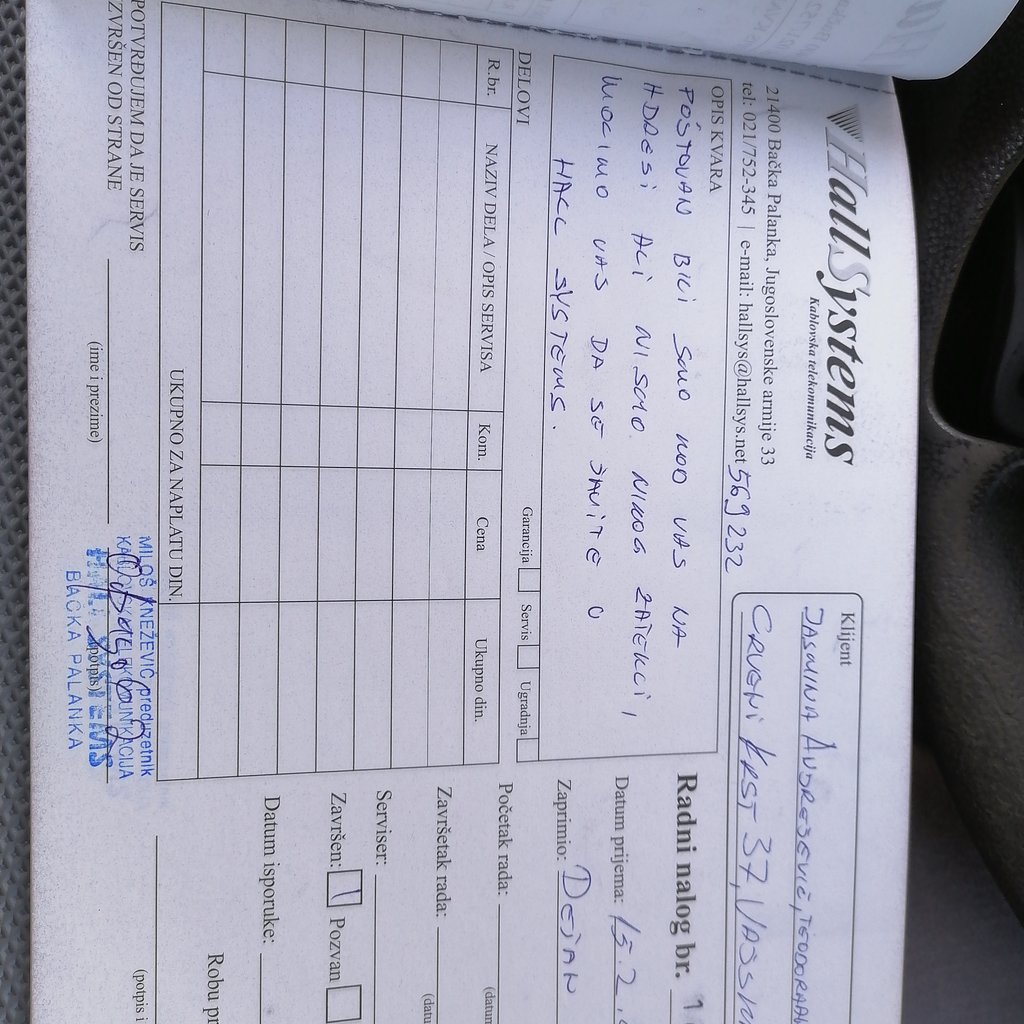 HallSystems
Kablovska telekomunikacija
21400 Bačka Palanka, Jugoslovenske armije 33
tel: 021/752-345 | e-mail: hallsys@hallsys.net 569 232
Klijent
JASMINA
CRVENI KRST 37,
OPIS KVARA
POŠTOVAN BILI SMO KOD VAS NA
ADRESI ALI NISMO NIKOG ZATEKLI,
MOLIMO VAS DA SE JAVITE U
HALL SYSTEMS.
DELOVI
Garancija Servis Ugradnja
R.br. NAZIV DELA / OPIS SERVISA Kom. Cena Ukupno din.
UKUPNO ZA NAPLATU DIN.
Radni nalog br. 1
Datum prijema: 15.2.
Zaprimio: DEJAN
Početak rada:
(datum
Završetak rada:
(datu
Serviser:
Završen: Pozvan
Datum isporuke:
Robu pr
(potpis i
POTVRĐUJEM DA JE SERVIS
ZVRŠEN OD STRANE
(ime i prezime)
(potpis)
MILOŠ KNEŽEVIĆ preduzetnik
KABLOVSKA TELEKOMUNIKACIJA
HALL SYSTEMS
BAČKA PALANKA